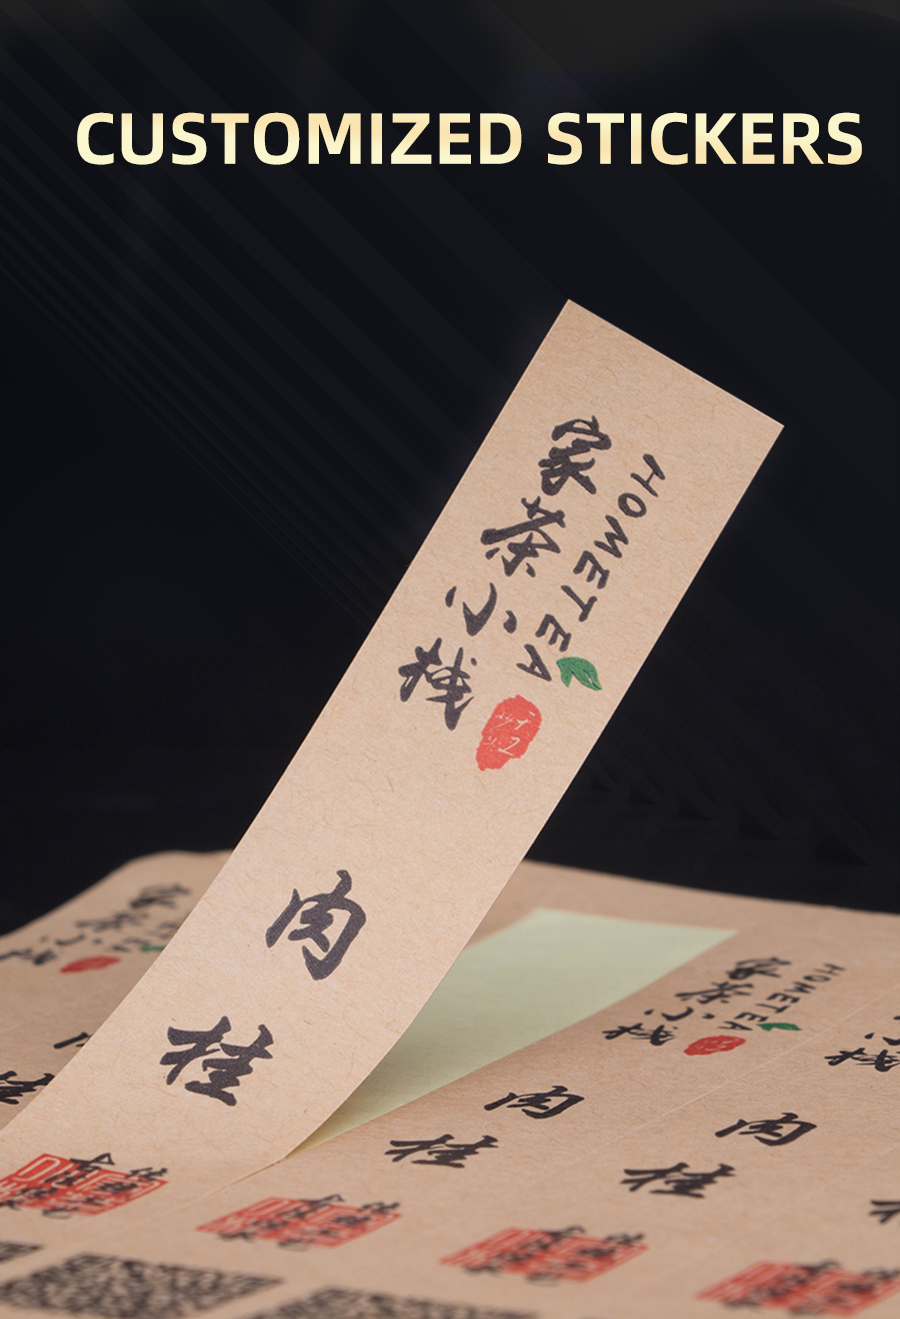 CUSTOMIZED STICKERS
家茶小栈
HOMETEA
肉桂
家茶小栈
HOMETEA
肉桂
肉桂